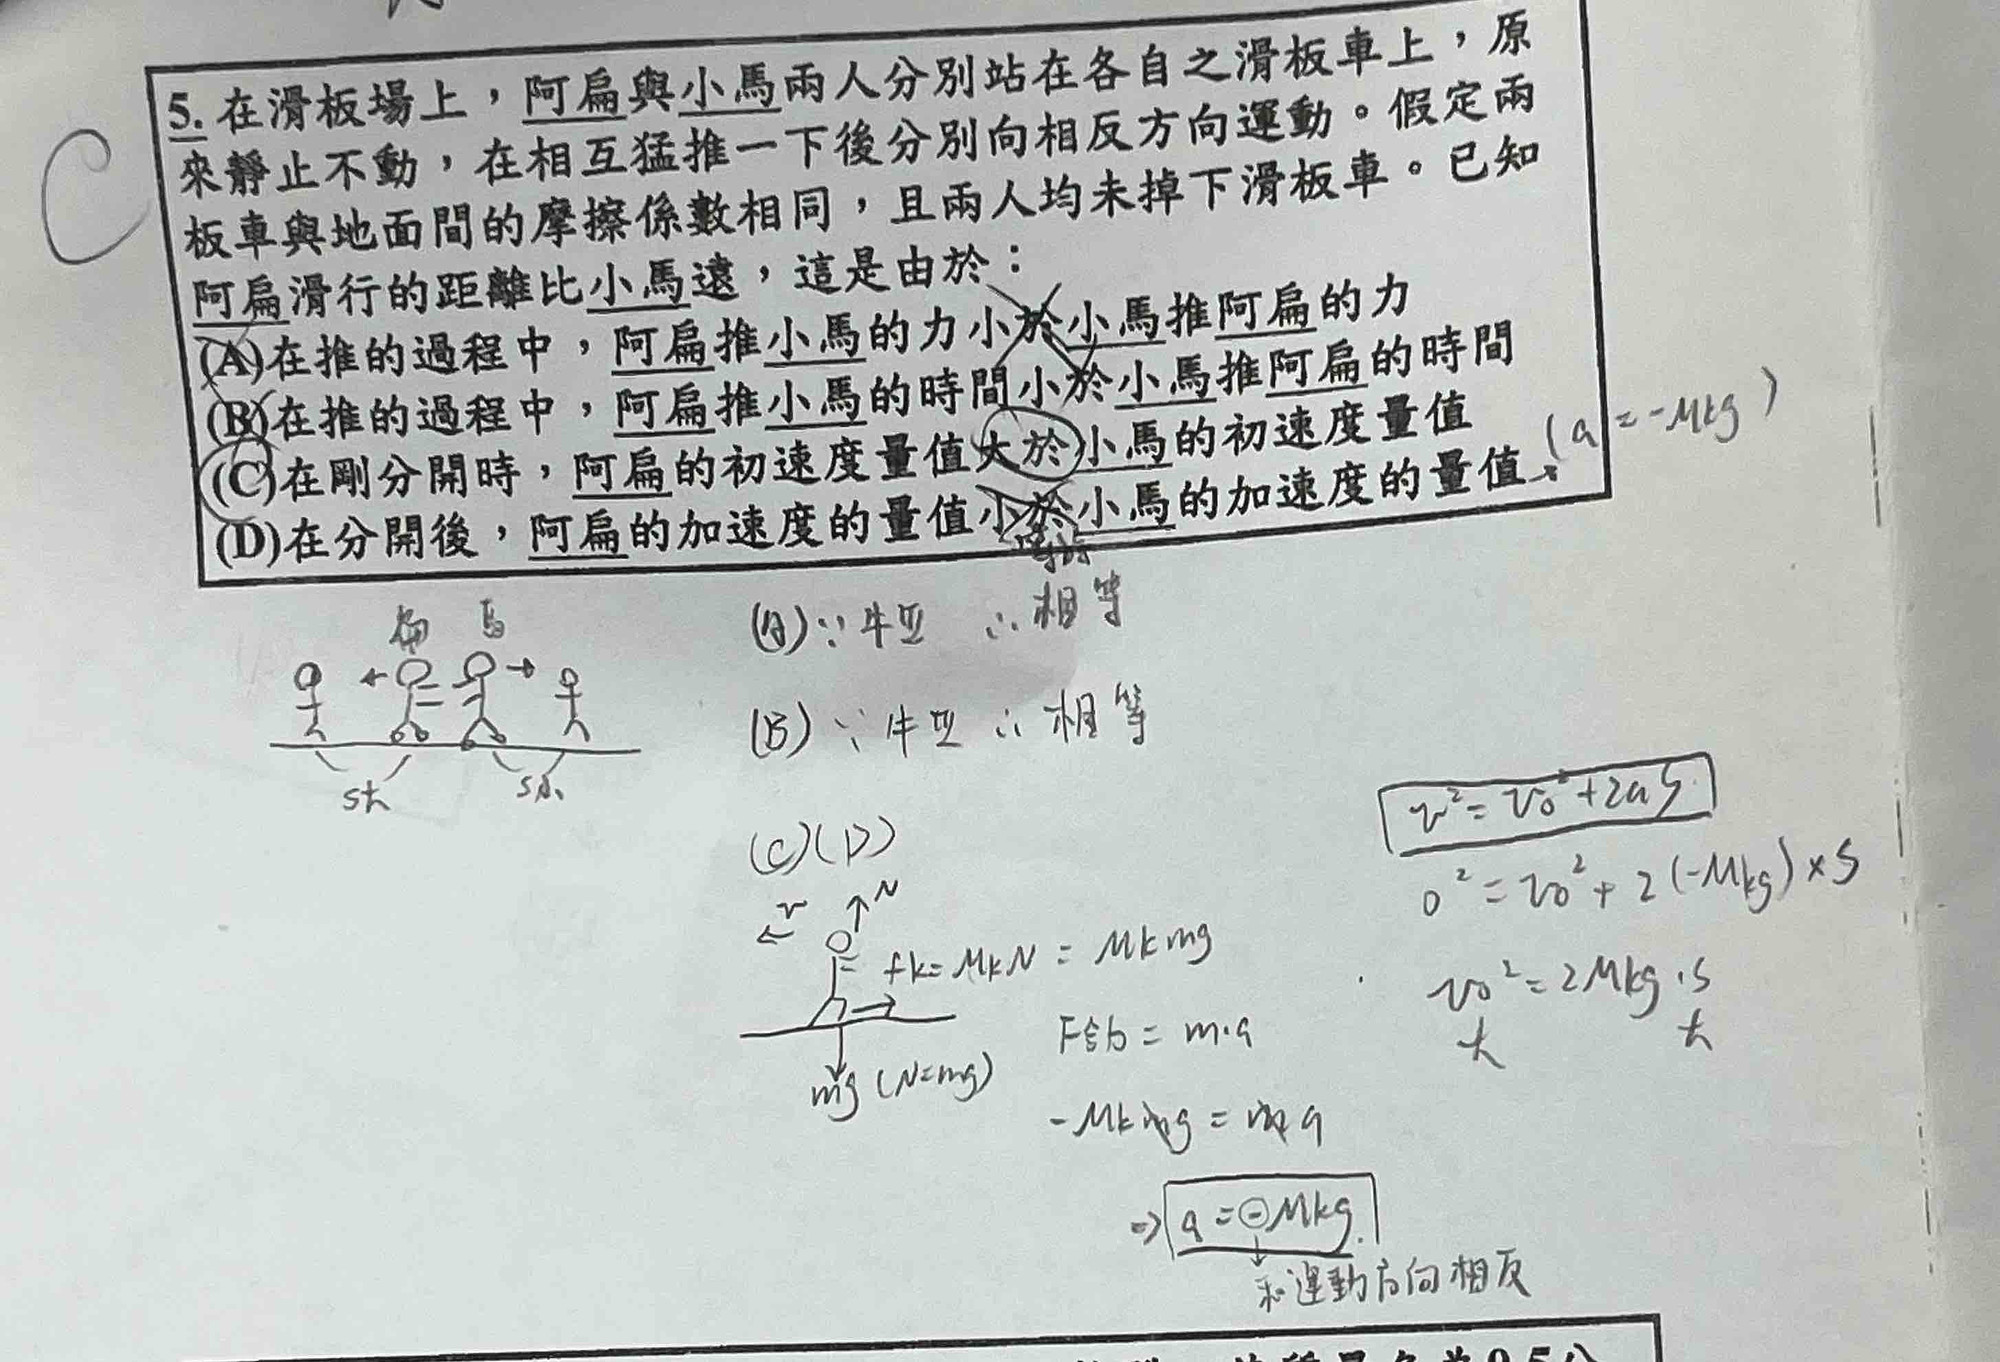 C
5. 在滑板場上，阿扁與小馬兩人分別站在各自之滑板車上，原
來靜止不動，在相互猛推一下後分別向相反方向運動。假定兩
板車與地面間的摩擦係數相同，且兩人均未掉下滑板車。已知
阿扁滑行的距離比小馬遠，這是由於：
(A)在推的過程中，阿扁推小馬的力小於小馬推阿扁的力
(B)在推的過程中，阿扁推小馬的時間小於小馬推阿扁的時間
(C)在剛分開時，阿扁的初速度量值大於小馬的初速度量值
(D)在分開後，阿扁的加速度的量值小於小馬的加速度的量值、
(a=-μkg)
扁 馬
S大 S小
(A)∵牛Ⅲ ∴相等
(B)∵牛Ⅲ ∴相等
(C)(D)
v N
fk=μkN=μkmg
mg (N=mg)
F合力=m·a
-μkmg=ma
⇒ a=-μkg
和運動方向相反
v²=v0²+2aS
0²=v0²+2(-μkg)×S
v0²=2μkg·S
大 大